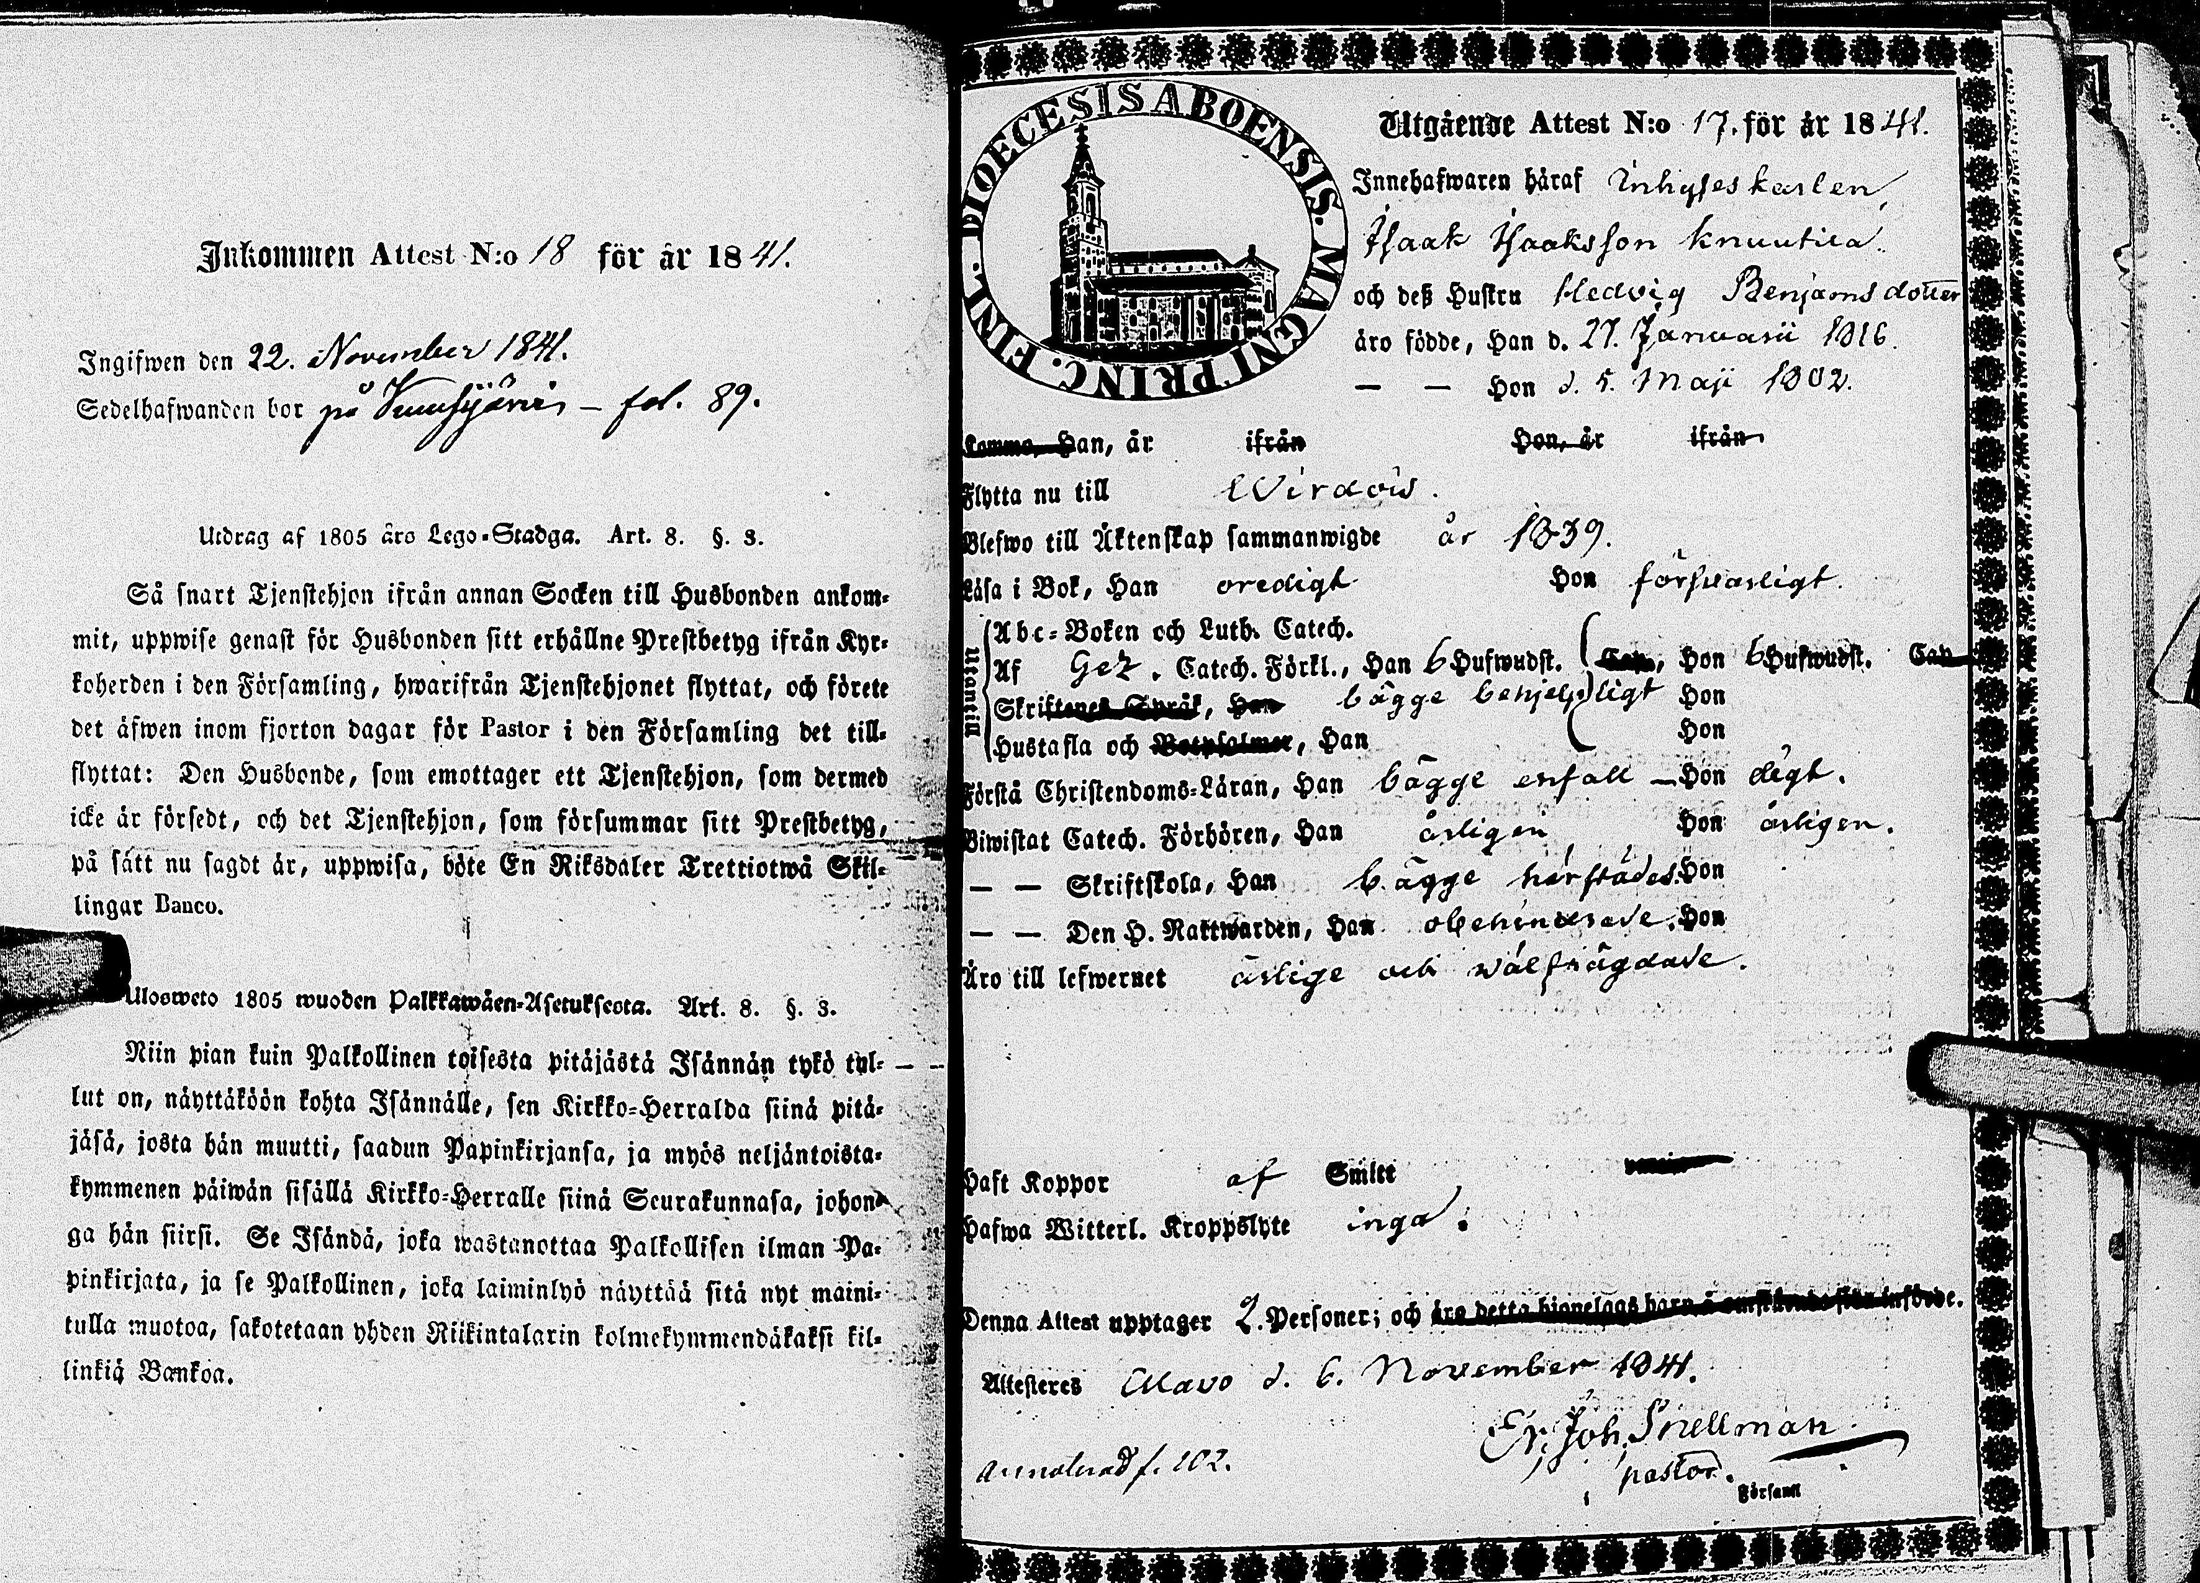 Inkommen Attest N:o 18 för år 1841.
Ingifwen den 22. November 1841.
Sedelhafwanden bor på – fol. 89.
Utdrag af 1805 års Lego-Stadga. Art. 8. §. 3.
Så snart Tjenstehjon ifrån annan Socken till Husbonden ankom-
mit, uppwise genast för Husbonden sitt erhållne Prestbetyg ifrån Kyr-
koherden i den Församling, hwarifrån Tjenstehjonet flyttat, och förete
det äfwen inom fjorton dagar för Pastor i den Församling det till-
flyttat: Den Husbonde, som emottager ett Tjenstehjon, som dermed
icke är försedt, och det Tjenstehjon, som försummar sitt Prestbetyg,
på sätt nu sagdt är, uppwisa, böte En Riksdaler Trettiotwå Skil-
lingar Banco.
Ulosweto 1805 wuoden Palkkawäen-Asetuksesta. Art. 8. §. 3.
Niin pian kuin Palkollinen toisesta pitäjästä Isännän tykö tul-
lut on, näyttäköön kohta Isännälle, sen Kirkko-Herralda siinä pitä-
jäsä, josta hän muutti, saadun Papinkirjansa, ja myös neljäntoista-
kymmenen päiwän sisällä Kirkko-Herralle siinä Seurakunnasa, johon-
ga hän siirsi. Se Isändä, joka wastanottaa Palkollisen ilman Pa-
pinkirjata, ja se Palkollinen, joka laiminlyö näyttää sitä nyt maini-
tulla muotoa, sakotetaan yhden Riikintalarin kolmekymmendäkaksi kil-
linkiä Bankoa.
DIOECESIS ABOENSIS. MAGNI PRINC. FINL.
Utgående Attest N:o 17. för år 1841.
Innehafwaren häraf Inhyseskarlen
Isaak Isaaksson Knuutila
och deß Hustru Hedvig Benjamsdotter
äro födde, Han d. 27. Januarii 1816.
— — Hon d. 5. Maji 1802.
Komma, Han, år ifrån Hon, år ifrån
Flytta nu till Wirdois.
Blefwo till Äktenskap sammanwigde år 1839.
Läsa i Bok, Han oredigt Hon försvarligt.
Utantill
Abc-Boken och Luth. Catech.
Af Gez. Catech. Förkl., Han 6 Hufwudst. Cap., Hon 6 Hufwudst. Cap
Skriftenes Språk, Han bägge behjelpligt Hon
Hustafla och Botpsalmer, Han Hon
Förstå Christendoms-Läran, Han bägge enfall — Hon digt.
Biwistat Catech. Förhören, Han årligen Hon årligen.
— — Skriftskola, Han bägge härstädes. Hon
— — Den H. Nattwarden, Han obehindrade. Hon
Äro till lefwernet ärlige och wälfrägdade.
Haft Koppor af Smitt
Hafwa Witterl. Kroppslyte inga.
Denna Attest upptager 2. Personer; och äro detta hjonelags barn å omstående sida införde.
Attesteres Alavo d. 6. November 1841.
Er. Joh. Snellman
pastor.
Församl
Annoterad f. 102.